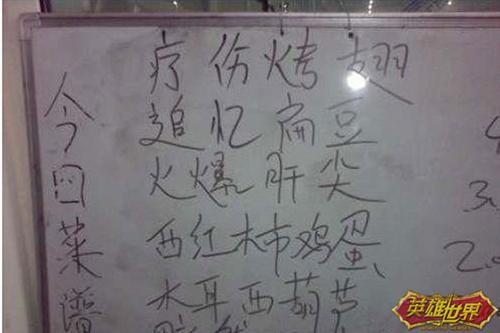 今日菜谱
疗伤烤翅
追忆扁豆
火爆肝尖
西红柿鸡蛋
木耳西葫芦
英雄世界